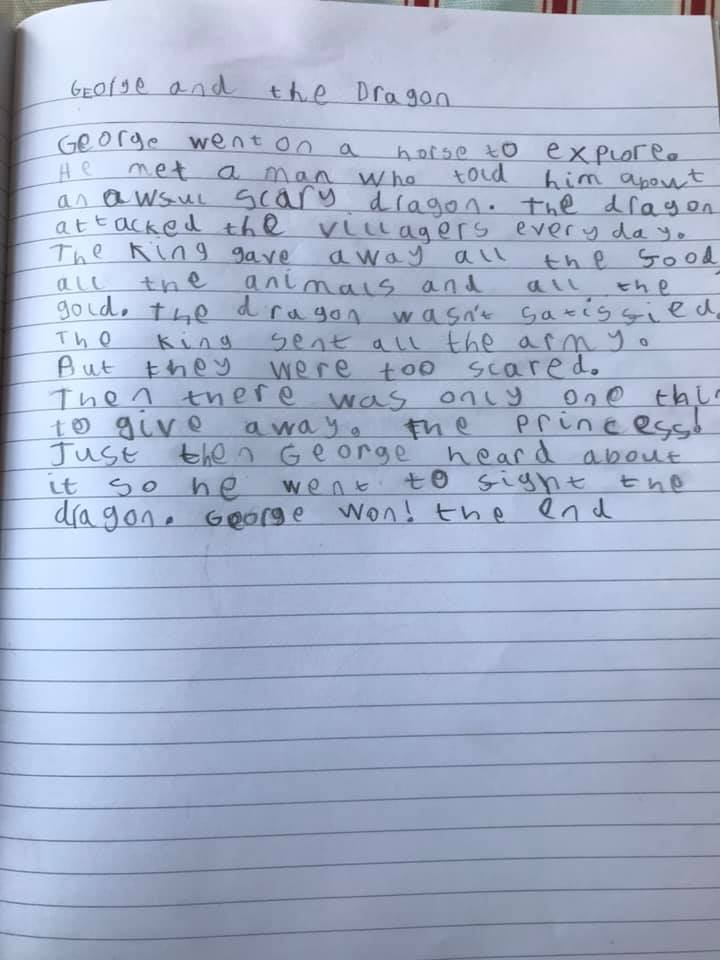 George and the Dragon
George went on a horse to explore.
He met a man who told him about
an awful scary dragon. The dragon
attacked the villagers every day.
The King gave away all the food,
all the animals and all the
gold. The dragon wasn't satisfied.
The king sent all the army.
But they were too scared.
Then there was only one thi
to give away. The princess!
Just then George heard about
it so he went to fight the
dragon. George won! the end